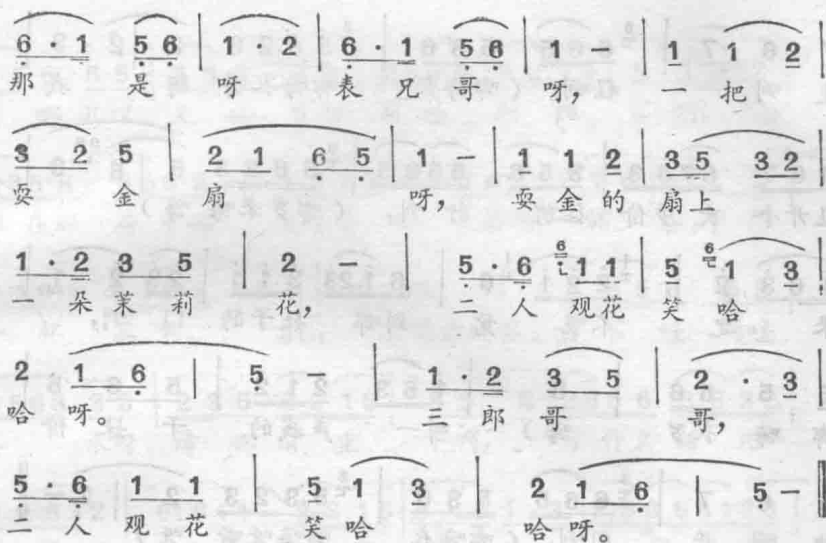 6·1 5 6 | 1·2 | 6·1 5 6 | 1 — | 1 1 2 |
那 是 呀 表 兄 哥 呀， 一 把
3 2 5 | 2 1 6 5 | 1 — | 1 1 2 | 3 5 3 2 |
耍 金 扇 呀， 耍 金 的 扇 上
1·2 3 5 | 2 — | 5·6 6 1 1 | 5 6 1 3 |
一 朵 茉 莉 花， 二 人 观 花 笑 哈
2 1 6 | 5 — | 1 2 3 5 | 2·3 |
哈 呀。 三 郎 哥 哥，
5·6 1 1 | 5 1 3 | 2 1 6 | 5 — ‖
二 人 观 花 笑 哈 哈 呀。